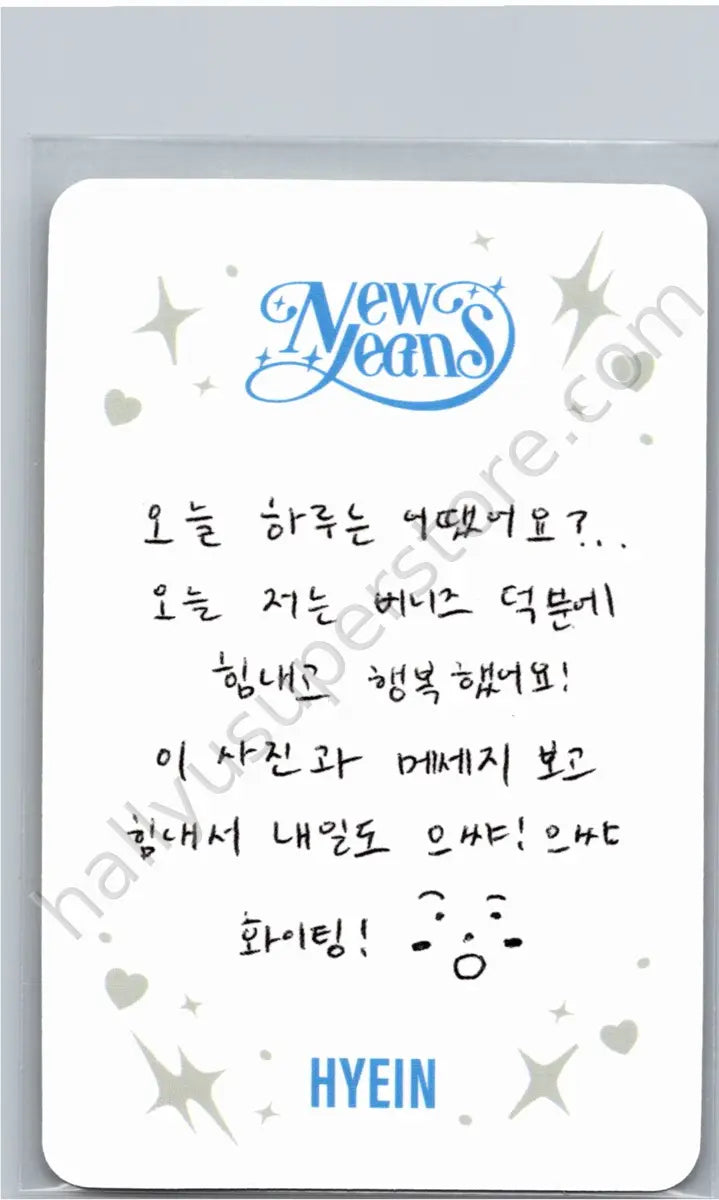 NewJeans
오늘 하루는 어땠어요?..
오늘 저는 버니즈 덕분에
힘내고 행복했어요!
이 사진과 메세지 보고
힘내서 내일도 으쌰! 으쌰
화이팅!
HYEIN
hallyusuperstore.com